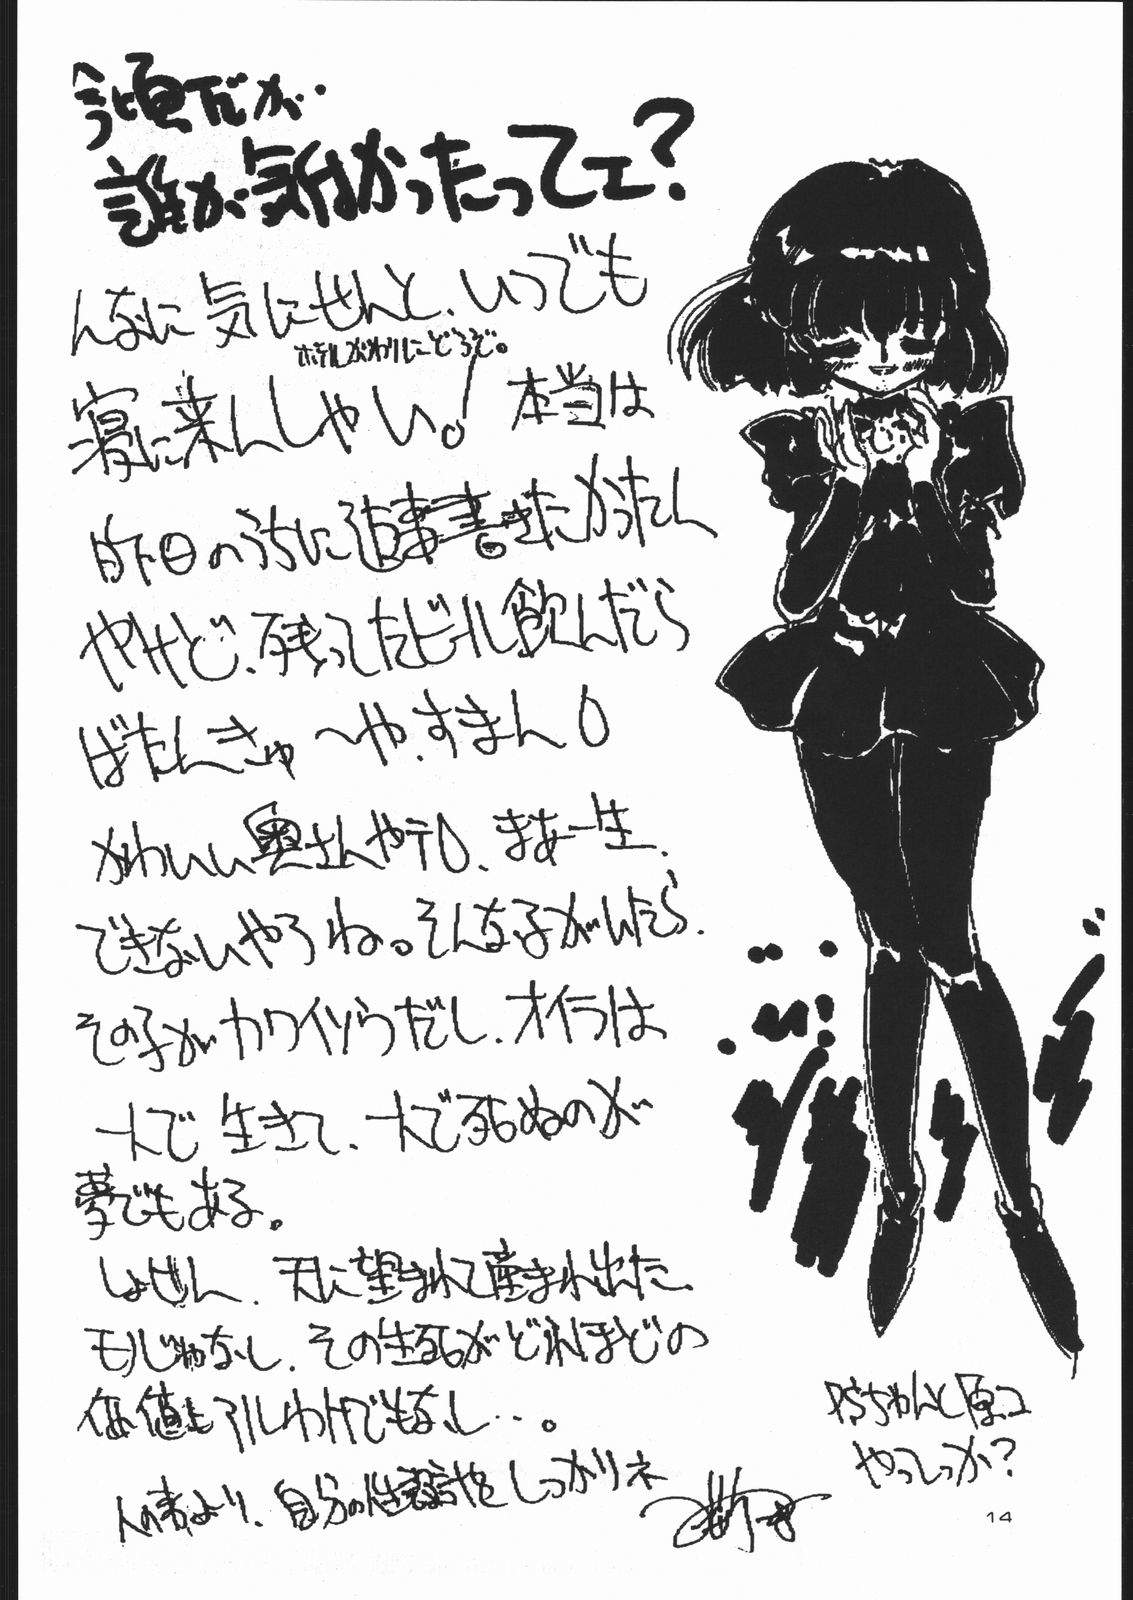 今頃だが・
誰が気付かったってェ?
んなに気にせんと、いつでも
ホテルがわりにどうぞ。
寝に来んしゃい。! 本当は
昨日のうちに返事書きたかったん
やけど、残ってたビール飲んだら
ばたんきゅ〜や、すまん
かわいい奥さんやテ、まあ一生、
できないやろね。そんな子がいたら、
その子がカワイソウだし、オイラは
一人で生きて、一人で死ぬのが
夢でもある。
しょせん、天に望まれて産まれ出た
モノじゃなし、その生死がどれほどの
価値もアルわけでもなし…。
人の事より、自分の しっかりネ
ちゃんと原コ
やっとっか?
14